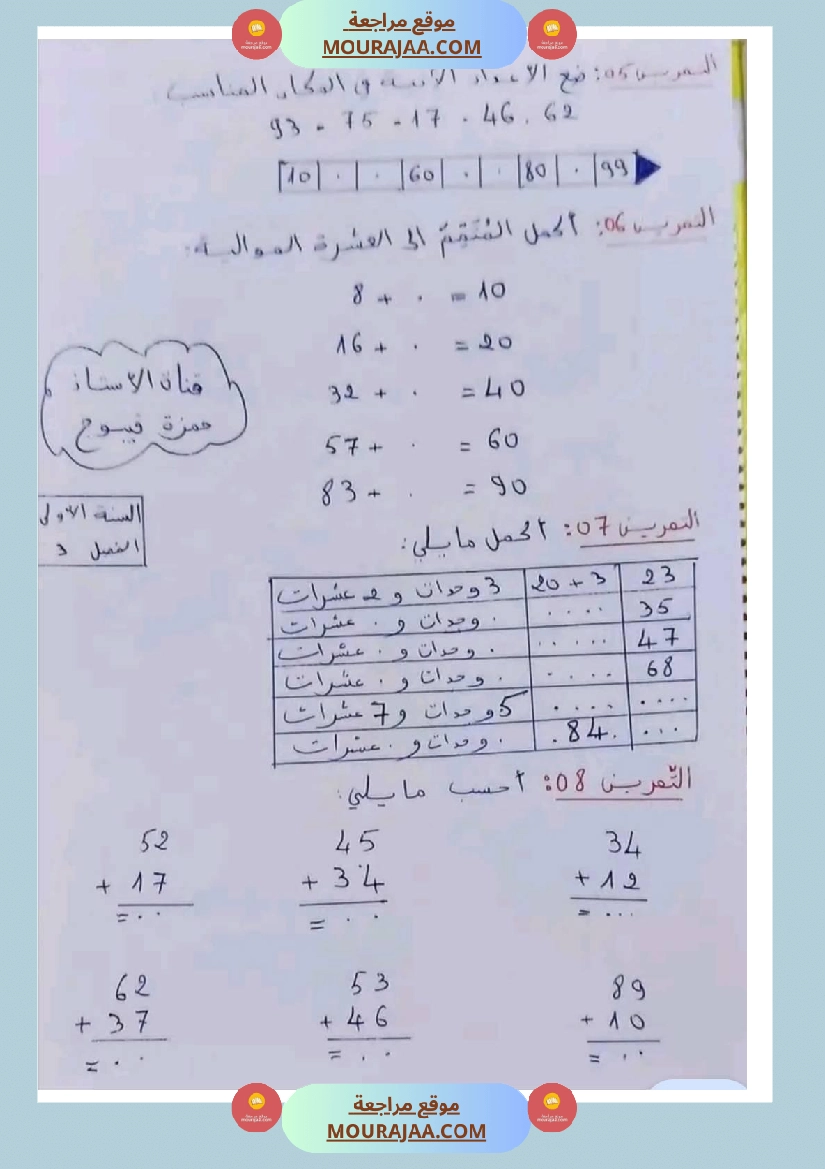 موقع مراجعة
MOURAJAA.COM
التمرين 05: ضع الأعداد الآتية في المكان المناسب
93 - 75 - 17 - 46 . 62
|10| . | . |60| . | . |80| . |99|
التمرين 06: أكمل المُتَمِّمَ الى العشرة الموالية:
8 + . = 10
16 + . = 20
32 + . = 40
57 + . = 60
83 + . = 90
قناة الأستاذ
حمزة فيسوح
السنة الاولى
الفصل 3
التمرين 07: أكمل مايلي:
23 | 20 + 3 | 3 وحدات و 2 عشرات
35 | .... | . وحدات و . عشرات
47 | ..... | . وحدات و . عشرات
68 | .... | . وحدات و . عشرات
.... | .... | 5 وحدات و 7 عشرات
... | .84. | . وحدات و . عشرات
التّمرين 08: أحسب مايلي:
34 45 52
+ 12 + 34 + 17
= ... = .. = ..
89 53 62
+ 10 + 46 + 37
= .. = .. = ..
موقع مراجعة
MOURAJAA.COM